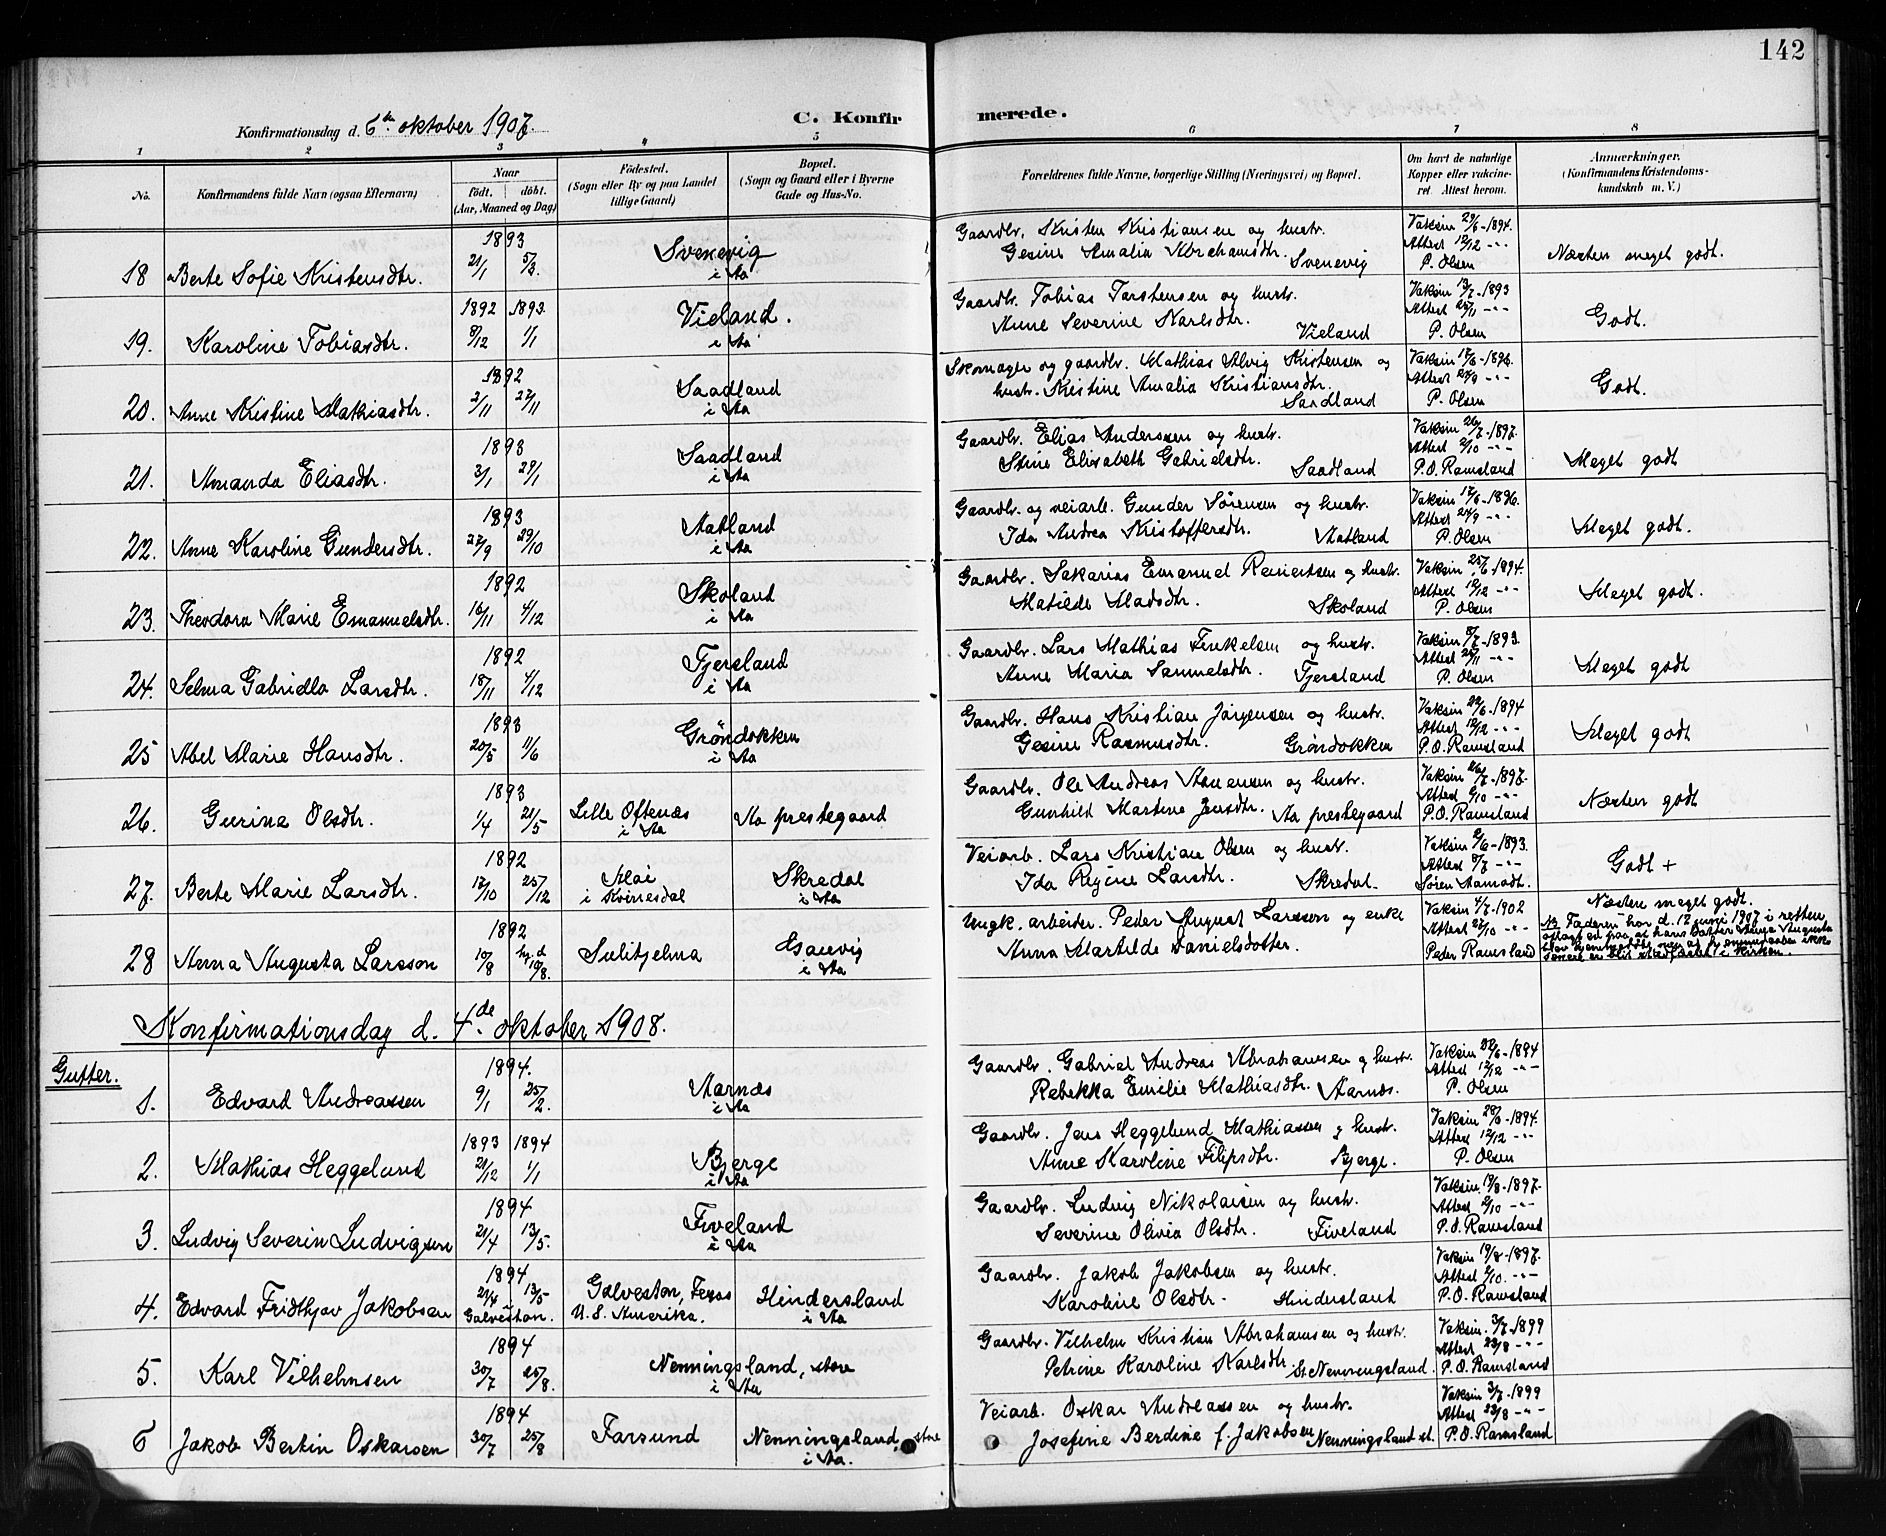 142
Konfirmationsdag d. 6te oktober 1907.
C. Konfirmerede.
1 2 3 4 5 6 7 8
No.
Konfirmandens fulde Navn (ogsaa Efternavn)
Naar
født. døbt.
(Aar, Maaned og Dag)
Fødested.
(Sogn eller By og paa Landet
tillige Gaard)
Bopæl.
(Sogn og Gaard eller i Byerne
Gade og Hus-No.
Forældrenes fulde Navne, borgerlige Stilling (Næringsvei) og Bopæl.
Om havt de naturlige
Kopper eller vakcine-
ret. Attest herom.
Anmærkninger.
(Konfirmandens Kristendoms-
kundskab m. V.)
1893 Svenevig Gaardbr. Kristen Kristiansen og hustr. Vaksin 29/6-1894.
18 Berte Sofie Kristensdtr. 21/1 5/3. i Aa Gesine Amalia Abrahamsdtr. Svenevig Attest 12/12 -"- Næsten meget godt.
P. Olsen
1892 1893. Vieland. Gaardbr. Tobias Tarstensen og hustr. Vaksin 13/7-1893
19. Karoline Tobiasdtr. 8/12 1/1 i Aa Anne Severine Karlsdtr. Vieland Attest 25/11 -"- Godt.
P. Olsen
1892 Saadland Skomager og gaardbr. Mathias Alvig Kristensen og Vaksin 17/6-1896.
20. Anne Kristine Mathiasdtr. 2/11 27/11 i Aa hustr. Kristine Amalia Kristiansdtr. Saadland Attest 24/9 -"- Godt.
P. Olsen
1893 Saadland Gaardbr. Elias Anderssen og hustr. Vaksin 26/7-1897.
21. Amanda Eliasdtr. 3/1 29/1 i Aa Stine Elisabeth Gabrielsdtr. Saadland Attest 2/10 -"- Meget godt
P. O. Ramsland
1893 Aatland Gaardbr. og veiarb. Gunder Sørensen og hustr. Vaksin 17/6-1896.
22. Anne Karoline Gundersdtr. 27/9 29/10 i Aa Ida Andrea Kristoffersdtr. Aatland Attest 24/9 -"- Meget godt.
P. Olsen
1892 Skoland Gaardbr. Sakarias Emanuel Reinertsen og hustr. Vaksin 25/6-1894.
23. Theodora Marie Emanuelsdtr. 16/11 4/12 i Aa Matilde Madsdtr. Skoland Attest 12/12 -"- Meget godt.
P. Olsen
1892 Fjersland Gaardbr. Lars Mathias Terkelsen og hustr. Vaksin 8/7-1893.
24. Selma Gabriella Larsdtr. 18/11 4/12 i Aa Anne Maria Samuelsdtr. Fjersland Attest 25/11 -"- Meget godt
P. Olsen
1893 Grøndokken Gaardbr. Hans Kristian Jørgensen og hustr. Vaksin 22/6-1894
25 Abel Marie Hansdtr. 20/5 11/6 i Aa Gesine Rasmusdtr. Grøndokken Attest 12/12 -"- Meget godt
P. O. Ramsland
1893 Gaardbr. Ole Andreas Aanensen og hustr. Vaksin 26/7-1897.
26. Gurina Olsdtr. 1/4 21/5 Lille Oftenæs i Aa Aa prestegaard Gunhild Martine Jensdtr. Aa prestegaard Attest 2/10 -"- Næsten godt
P. O. Ramsland
1892 Veiarb. Lars Kristian Olsen og hustr. Vaksin 2/6-1893.
27. Berte Marie Larsdtr. 17/10 25/12 Moi i Kvinesdal Skredal i Aa Ida Regine Larsdtr. Skredal Attest 8/7 -"- Godt +
Søren Aamodt.
1892 Ungk. arbeider. Peder August Larsson og enke Vaksin 4/7-1902 Næsten meget godt.
28 Anna Augusta Larsson 10/8 hj. d. 10/8. Sulitjelma Esauvig i Aa Anna Martilde Danielsdotter. Attest 27/10 -"-
Peder Ramsland
NB Faderen har d. 12 juni 1907 i retten
aflagt ed paa, at hans datter Anna Augusta
blev hjemmedøbt, men at hjemmedaaben ikke
senere er blit stadfæstet i kirken.
Konfirmationsdag d. 4de oktober 1908.
Gutter.
1894. Aarnæs Gaardbr. Gabriel Andreas Abrahamsen og hustr. Vaksin 22/6-1894
1. Edvard Andreassen 9/1 25/2. i Aa Rebekka Emilie Mathiasdtr. Aarnæs. Attest 12/12 -"-
P. Olsen
1893 1894 Bjerge Gaardbr. Jens Heggelund Mathiassen og hustr. Vaksin 28/6-1894.
2. Mathias Heggelund 21/12 1/1 i Aa Anne Karoline Filipsdtr. Bjerge. Attest 12/12 -"-
P. Olsen
1894 Fiveland Gaardbr. Ludvig Nikolaisen og hustr. Vaksin 19/8-1897.
3. Ludvig Severin Ludvigsen 21/4 13/5. i Aa Severine Olivia Olsdtr. Fiveland Attest 2/10 -"-
P. O. Ramsland
1894 Gaardbr. Jakob Jakobsen og hustr. Vaksin 19/8-1897.
4. Edvard Fridthjov Jakobsen 21/4 13/5 Galveston. Galveston, Texas U. S. Amerika. Hindersland i Aa Karoline Olsdtr. Hindersland Attest 2/10. -"-
P. O. Ramsland
1894 Nenningsland, store Gaardbr. Vilhelm Kristian Abrahamsen og hustr. Vaksin. 3/7-1899
5. Karl Vilhelmsen 30/7 25/8. i Aa Petrine Karoline Karlsdtr. St. Nenningsland. Attest 23/8 -"-
P. O. Ramsland
1894 Veiarb. Oskar Andreassen og hustr. Vaksin 3/7-1899
6 Jakob Bertin Oskarsen 30/7 25/8 Farsund Nenningsland, store i Aa. Josefine Berdine f. Jakobsen Nenningsland st. Attest 23/8 -"-
P. O. Ramsland